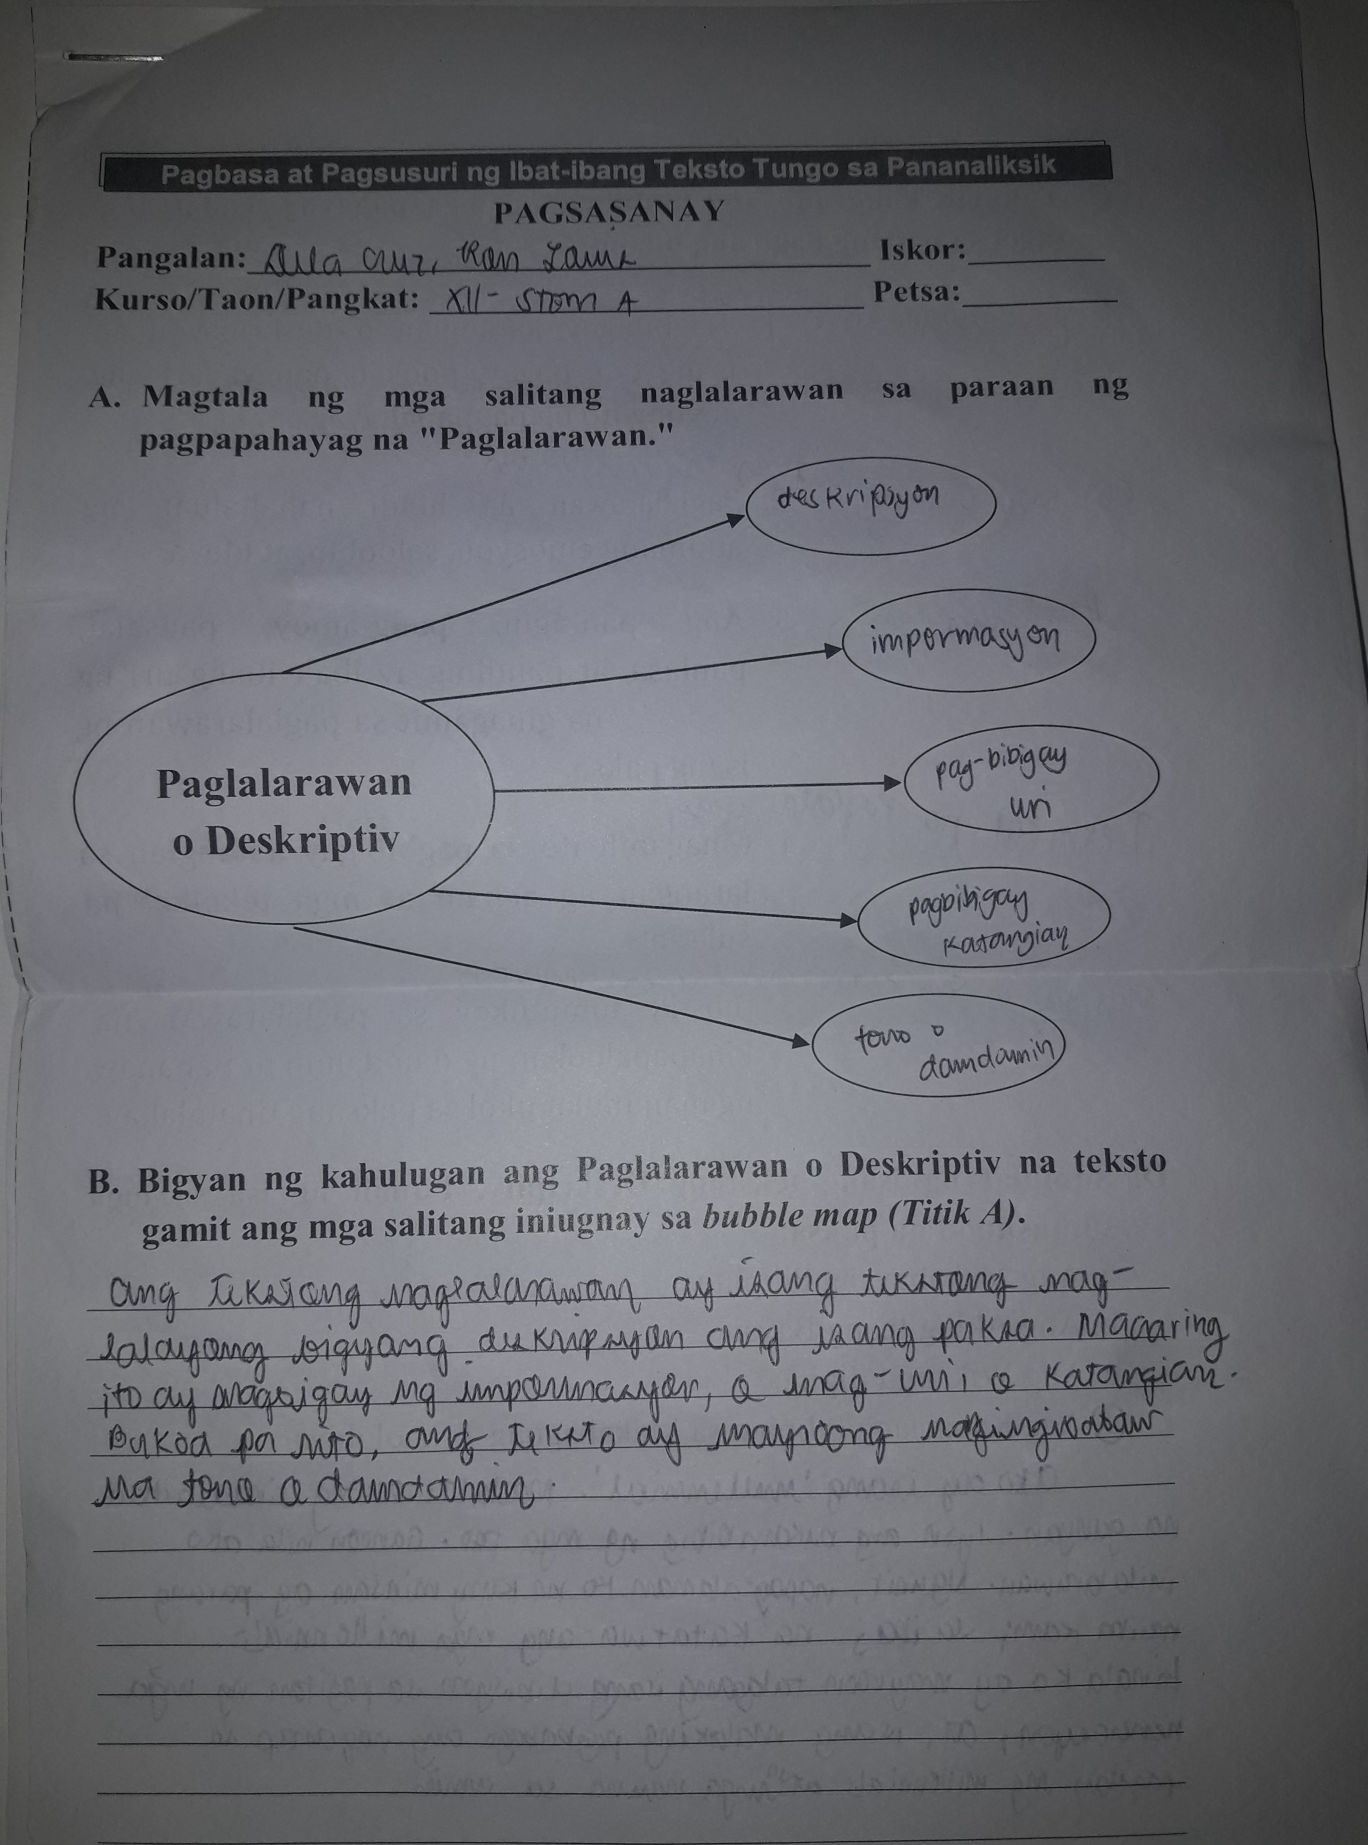 Pagbasa at Pagsusuri ng Ibat-ibang Teksto Tungo sa Pananaliksik
PAGSASANAY
Pangalan: Dela Cruz, Ran Iskor:
Kurso/Taon/Pangkat: XII - STEM A Petsa:
A. Magtala ng mga salitang naglalarawan sa paraan ng
pagpapahayag na "Paglalarawan."
deskripsyon
impormasyon
pag-bibigay
uri
Paglalarawan
o Deskriptiv
pagbibigay
katangian
tono o
damdamin
B. Bigyan ng kahulugan ang Paglalarawan o Deskriptiv na teksto
gamit ang mga salitang iniugnay sa bubble map (Titik A).
ang tekstong naglalarawan ay isang tekstong nag-
lalayong bigyang deskripsyon ang isang paksa. Maaaring
ito ay magbigay ng impormasyon, o mag-uri, o katangian.
Bukod pa nito, ang teksto ay mayroong nangingibabaw
na tono o damdamin.